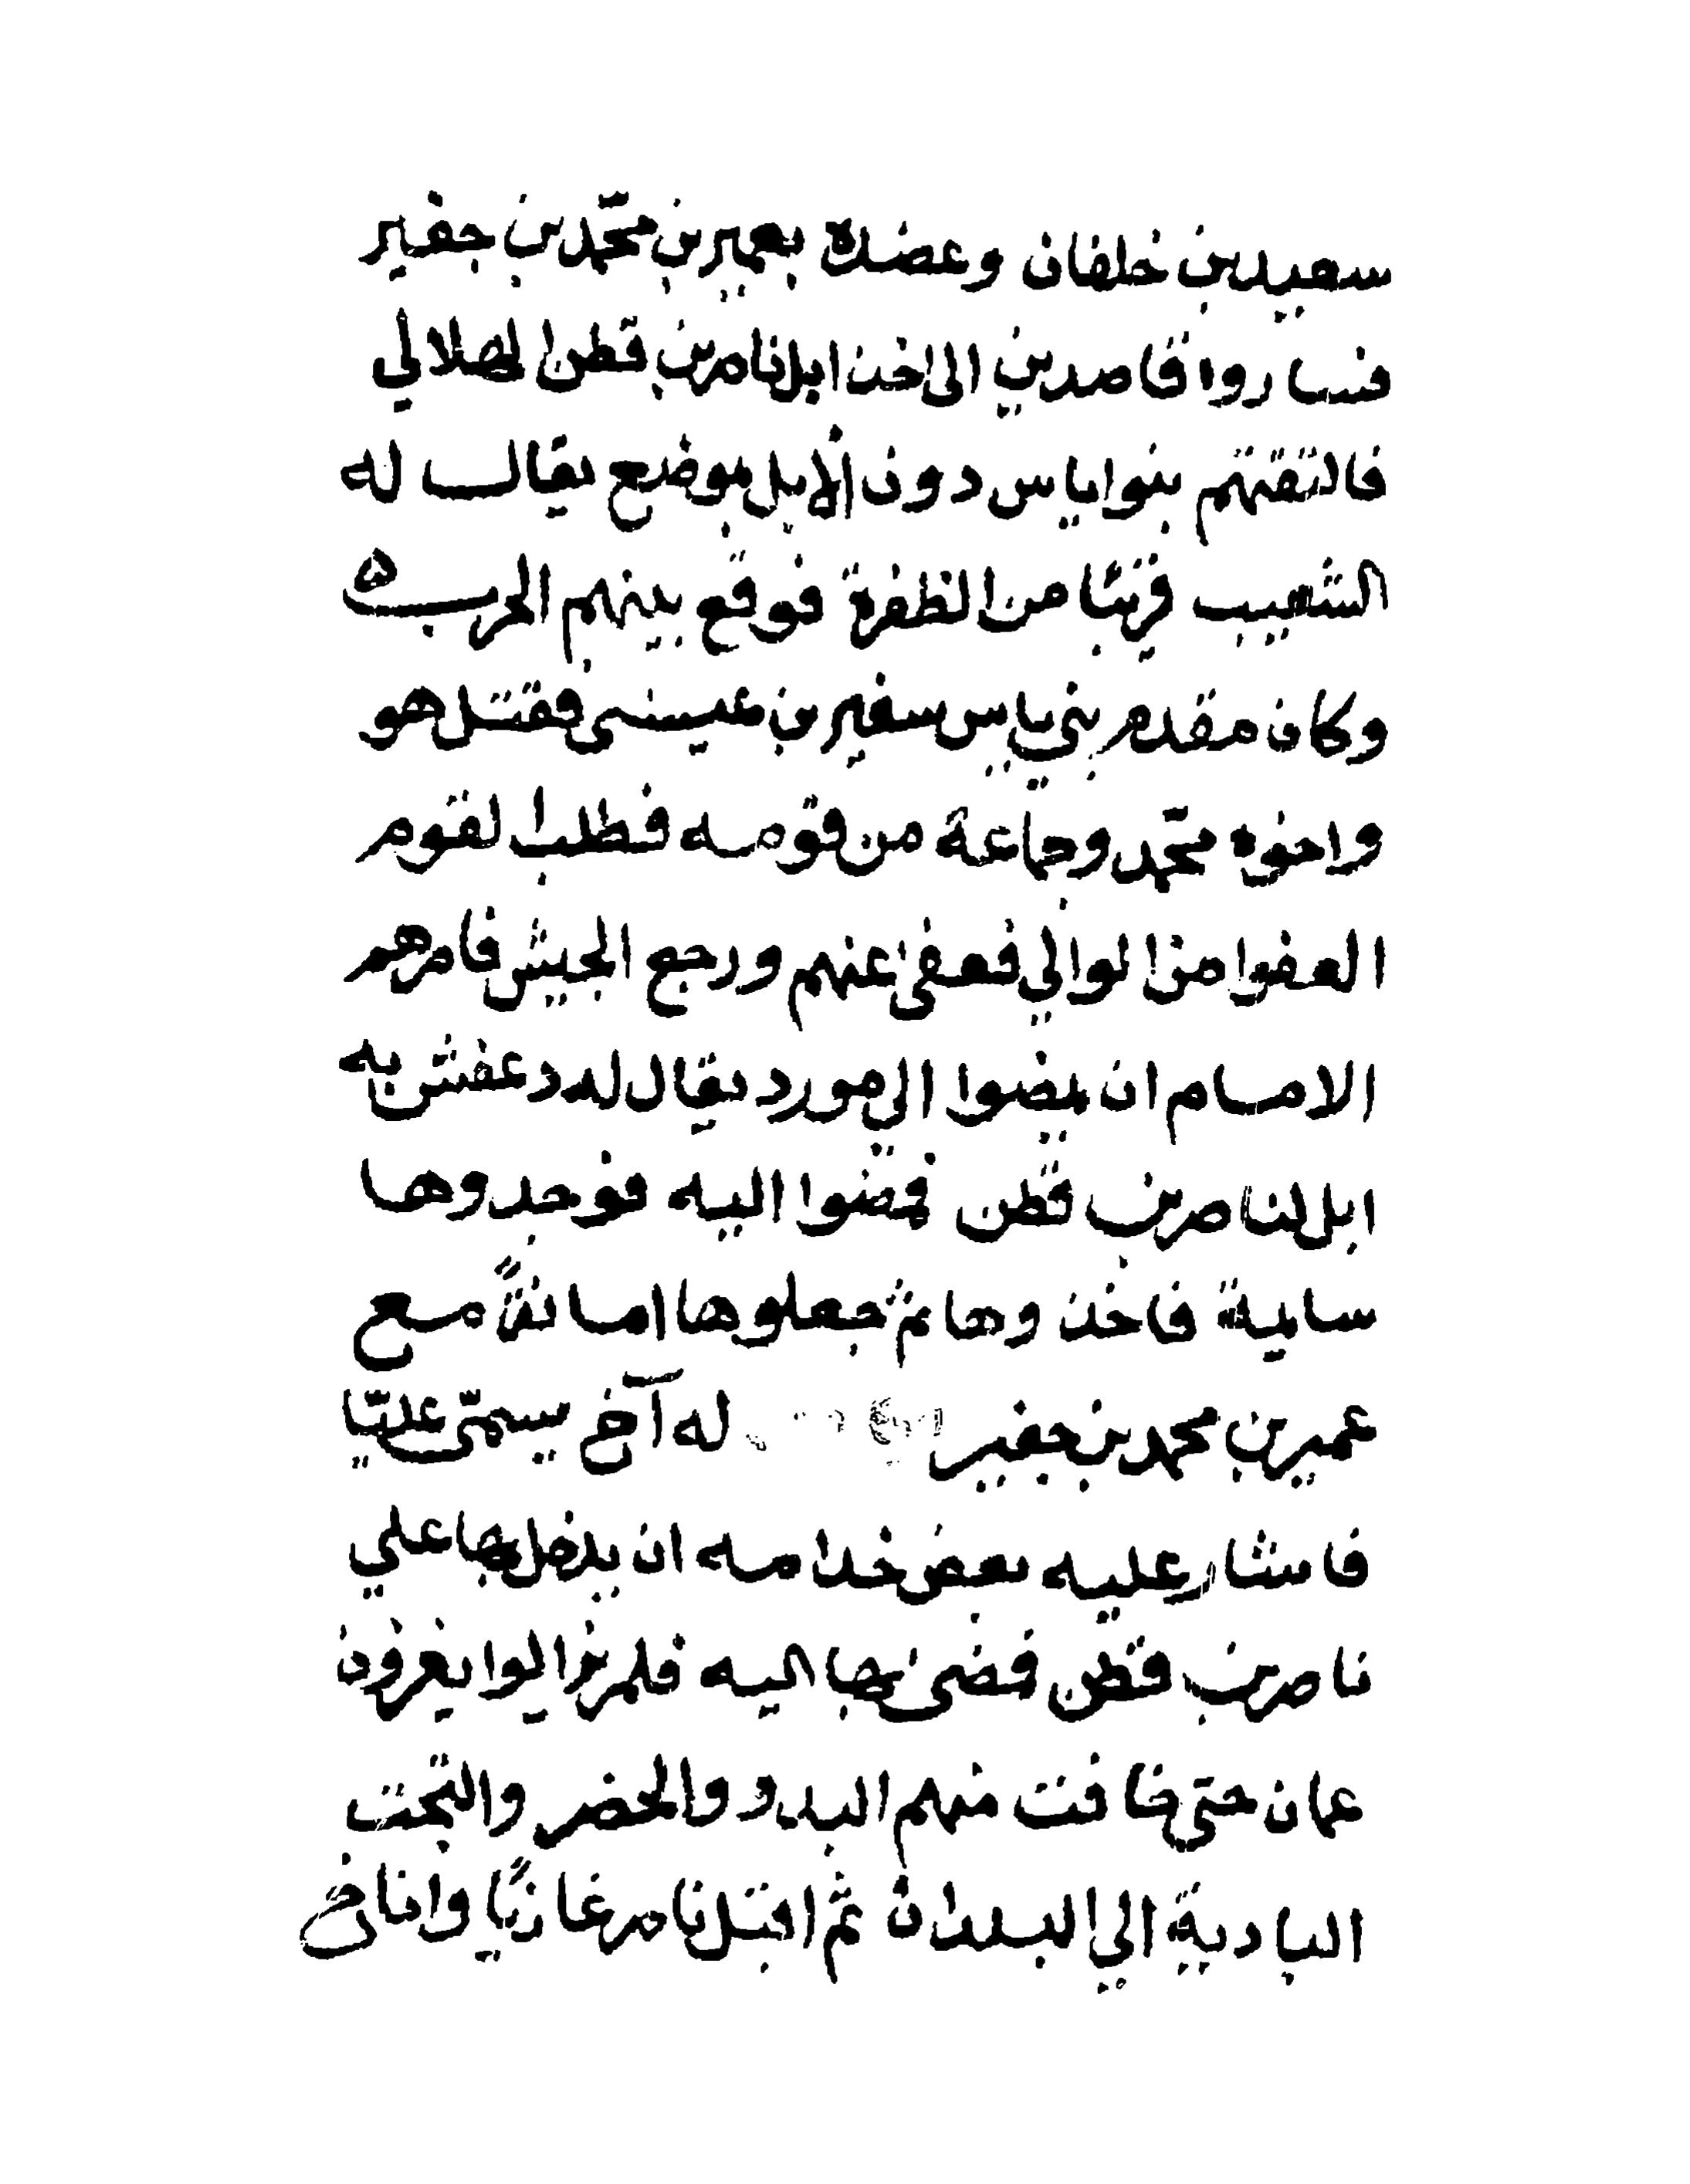 سعيد بن خلفان وعضده بعمير بن محمّد بن جفير
فساروا قاصدين الى اخذ ابل ناصر بن قطن الهلالي
فالتقتهم بنوا ياس دون الابل بموضع يقال له
الشعيب قريبًا من الظفرة فوقع بينهم الحرب ه
وكان مقدم بني ياس سفير بن عيسى فقتل هو
واخوه محّمد وجماعة من قومه فطلب القوم
العفوا من الوالي فعفى عنهم ورجع الجيش فامرهم
الامام ان يمضوا الى مورد يقال له دعفش به
ابل لناصر بن قطن فمضوا اليه فوجدوها
سايبة فاخذوها ثم جعلوها امانةً مع
عمير بن محمد بن جفير له آخ يسمّى عليّا
فاشار عليه بعض خدامه ان يدخل بها علي
ناصر بن قطن فمضى بها اليه فلم يزالوا يغزون
عمان حتى خافت منهم البدو والحضر والتجت
البادية الي البلدان ثم اقبل ناصر غازيًا واناخ